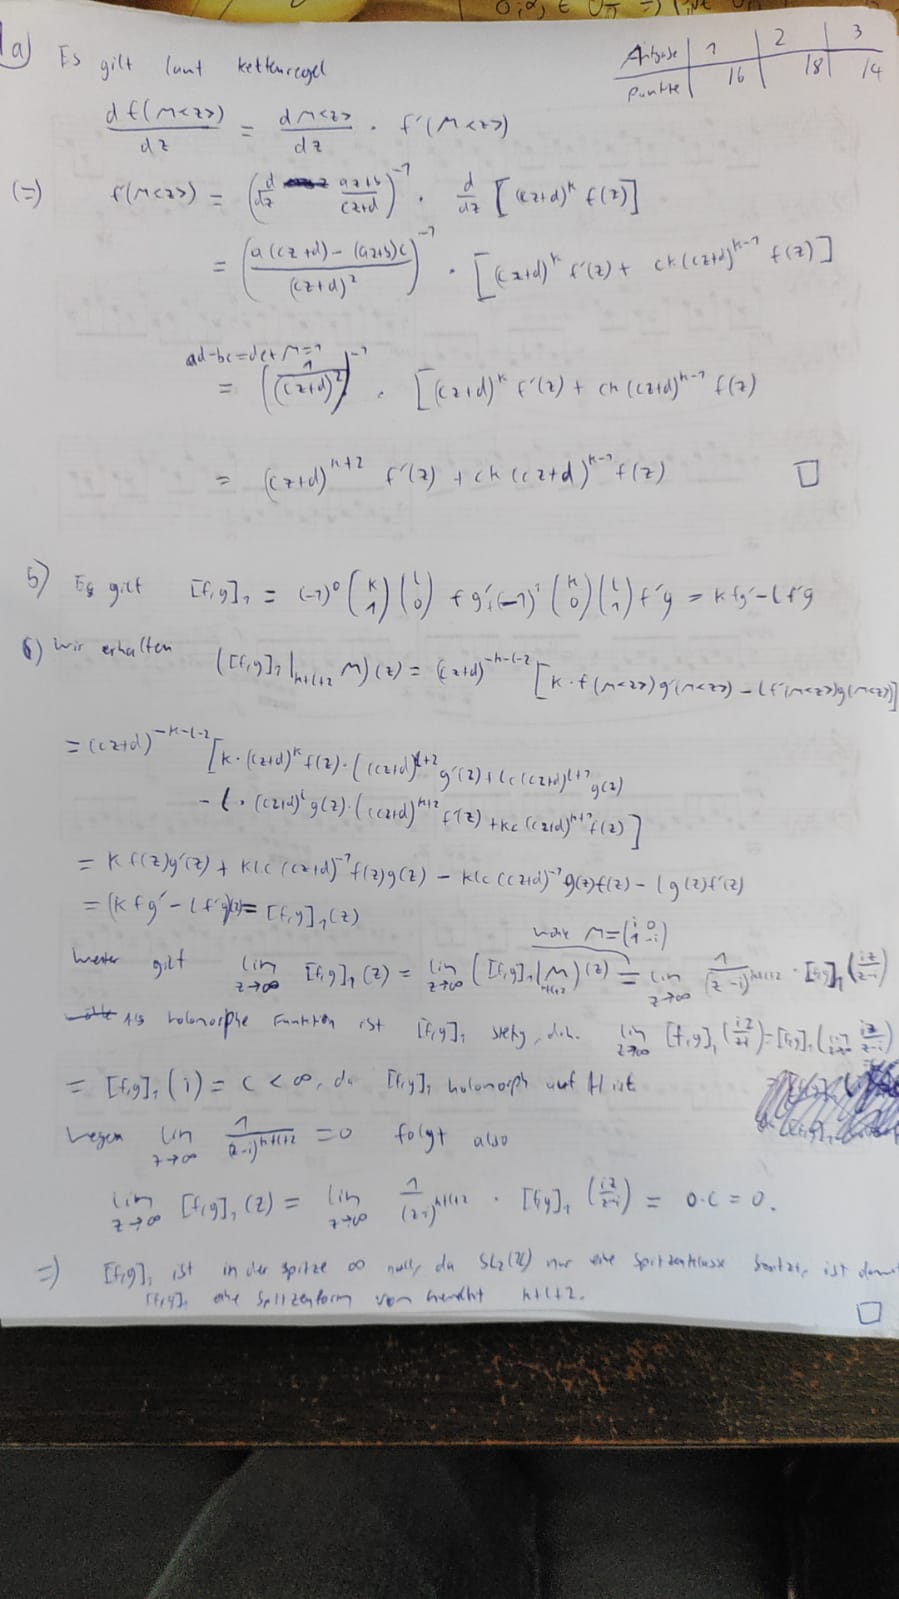 Aufgabe | 1 | 2 | 3
Punkte | 16 | 18 | 14
1a) Es gilt laut Kettenregel
d f(M<z>) / dz = d M<z> / dz · f'(M<z>)
(=) f'(M<z>) = (d/dz (az+b)/(cz+d))^-1 · d/dz [(cz+d)^k f(z)]
= ((a(cz+d) - (az+b)c)/(cz+d)^2)^-1 · [(cz+d)^k f'(z) + ck(cz+d)^(k-1) f(z)]
ad-bc=det M=1
= (1/(cz+d)^2)^-1 · [(cz+d)^k f'(z) + ck(cz+d)^(k-1) f(z)
= (cz+d)^(k+2) f'(z) + ck(cz+d)^(k-1) f(z) □
b) Es gilt [f,g]₁ = (-1)^0 (k 1) (l 0) f g' + (-1)^1 (k 0) (l 1) f'g = k fg' - l f'g
Wir erhalten ([f,g]₁|_(k+l+2) M)(z) = (cz+d)^(-k-l-2) [k·f(M<z>)g'(M<z>) - l f'(M<z>)g(M<z>)]
= (cz+d)^(-k-l-2) [k·(cz+d)^k f(z)·((cz+d)^(l+2) g'(z) + lc(cz+d)^(l+1) g(z)
- l·(cz+d)^l g(z)·((cz+d)^(k+2) f'(z) + kc(cz+d)^(k+1) f(z)]
= k f(z)g'(z) + klc(cz+d)^-1 f(z)g(z) - klc(cz+d)^-1 g(z)f(z) - l g(z)f'(z)
= (k fg' - l f'g)(z) = [f,g]₁(z)
M=(i 0 1 -i)
Weiter gilt lim z→∞ [f,g]₁(z) = lim z→∞ ([f,g]₁|_(k+l+2) M)(z) = lim z→∞ 1/(z-i)^(k+l+2) · [f,g]₁(iz/(z-i))
Als holomorphe Funktion ist [f,g]₁ stetig, d.h. lim z→∞ [f,g]₁(iz/(z-i)) = [f,g]₁(lim z→∞ iz/(z-i))
= [f,g]₁(i) = C < ∞, da [f,g]₁ holomorph auf H ist
Wegen lim z→∞ 1/(z-i)^(k+l+2) = 0 folgt also
lim z→∞ [f,g]₁(z) = lim z→∞ 1/(z-i)^(k+l+2) · [f,g]₁(iz/(z-i)) = 0·C = 0.
=) [f,g]₁ ist in der Spitze ∞ null, da SL₂(Z) nur eine Spitzenklasse besitzt, ist damit
[f,g]₁ eine Spitzenform vom Gewicht k+l+2. □